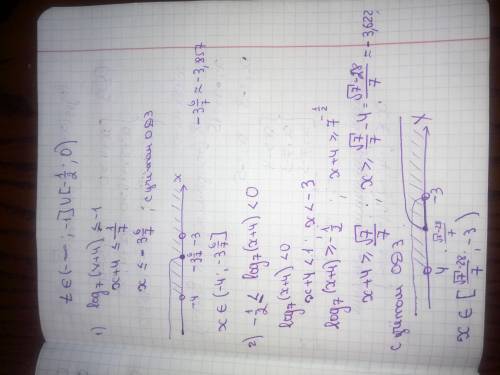 t ∈ (-∞; -1] ∪ [-1/2; 0)
1) log₇(x+4) ≤ -1
x+4 ≤ 1/7
x ≤ -3 6/7 ; с учётом ОДЗ
-4 -3 6/7 -3 x
x ∈ (-4; -3 6/7] -3 6/7 ≈ -3,857
2) -1/2 ≤ log₇(x+4) < 0
log₇(x+4) < 0
x+4 < 1 ; x < -3
log₇(x+4) ≥ -1/2 ; x+4 ≥ 7^(-1/2)
x+4 ≥ √7/7 ; x ≥ √7/7 - 4 = (√7-28)/7 ≈ -3,622
с учётом ОДЗ
4 (√7-28)/7 -3 X
x ∈ [(√7-28)/7 ; -3)